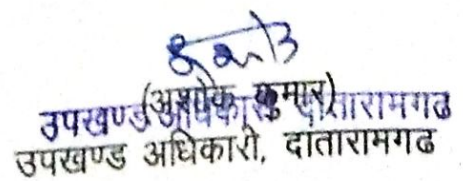 (अशोक कुमार)
उपखण्ड अधिकारी दांतारामगढ
उपखण्ड अधिकारी, दांतारामगढ